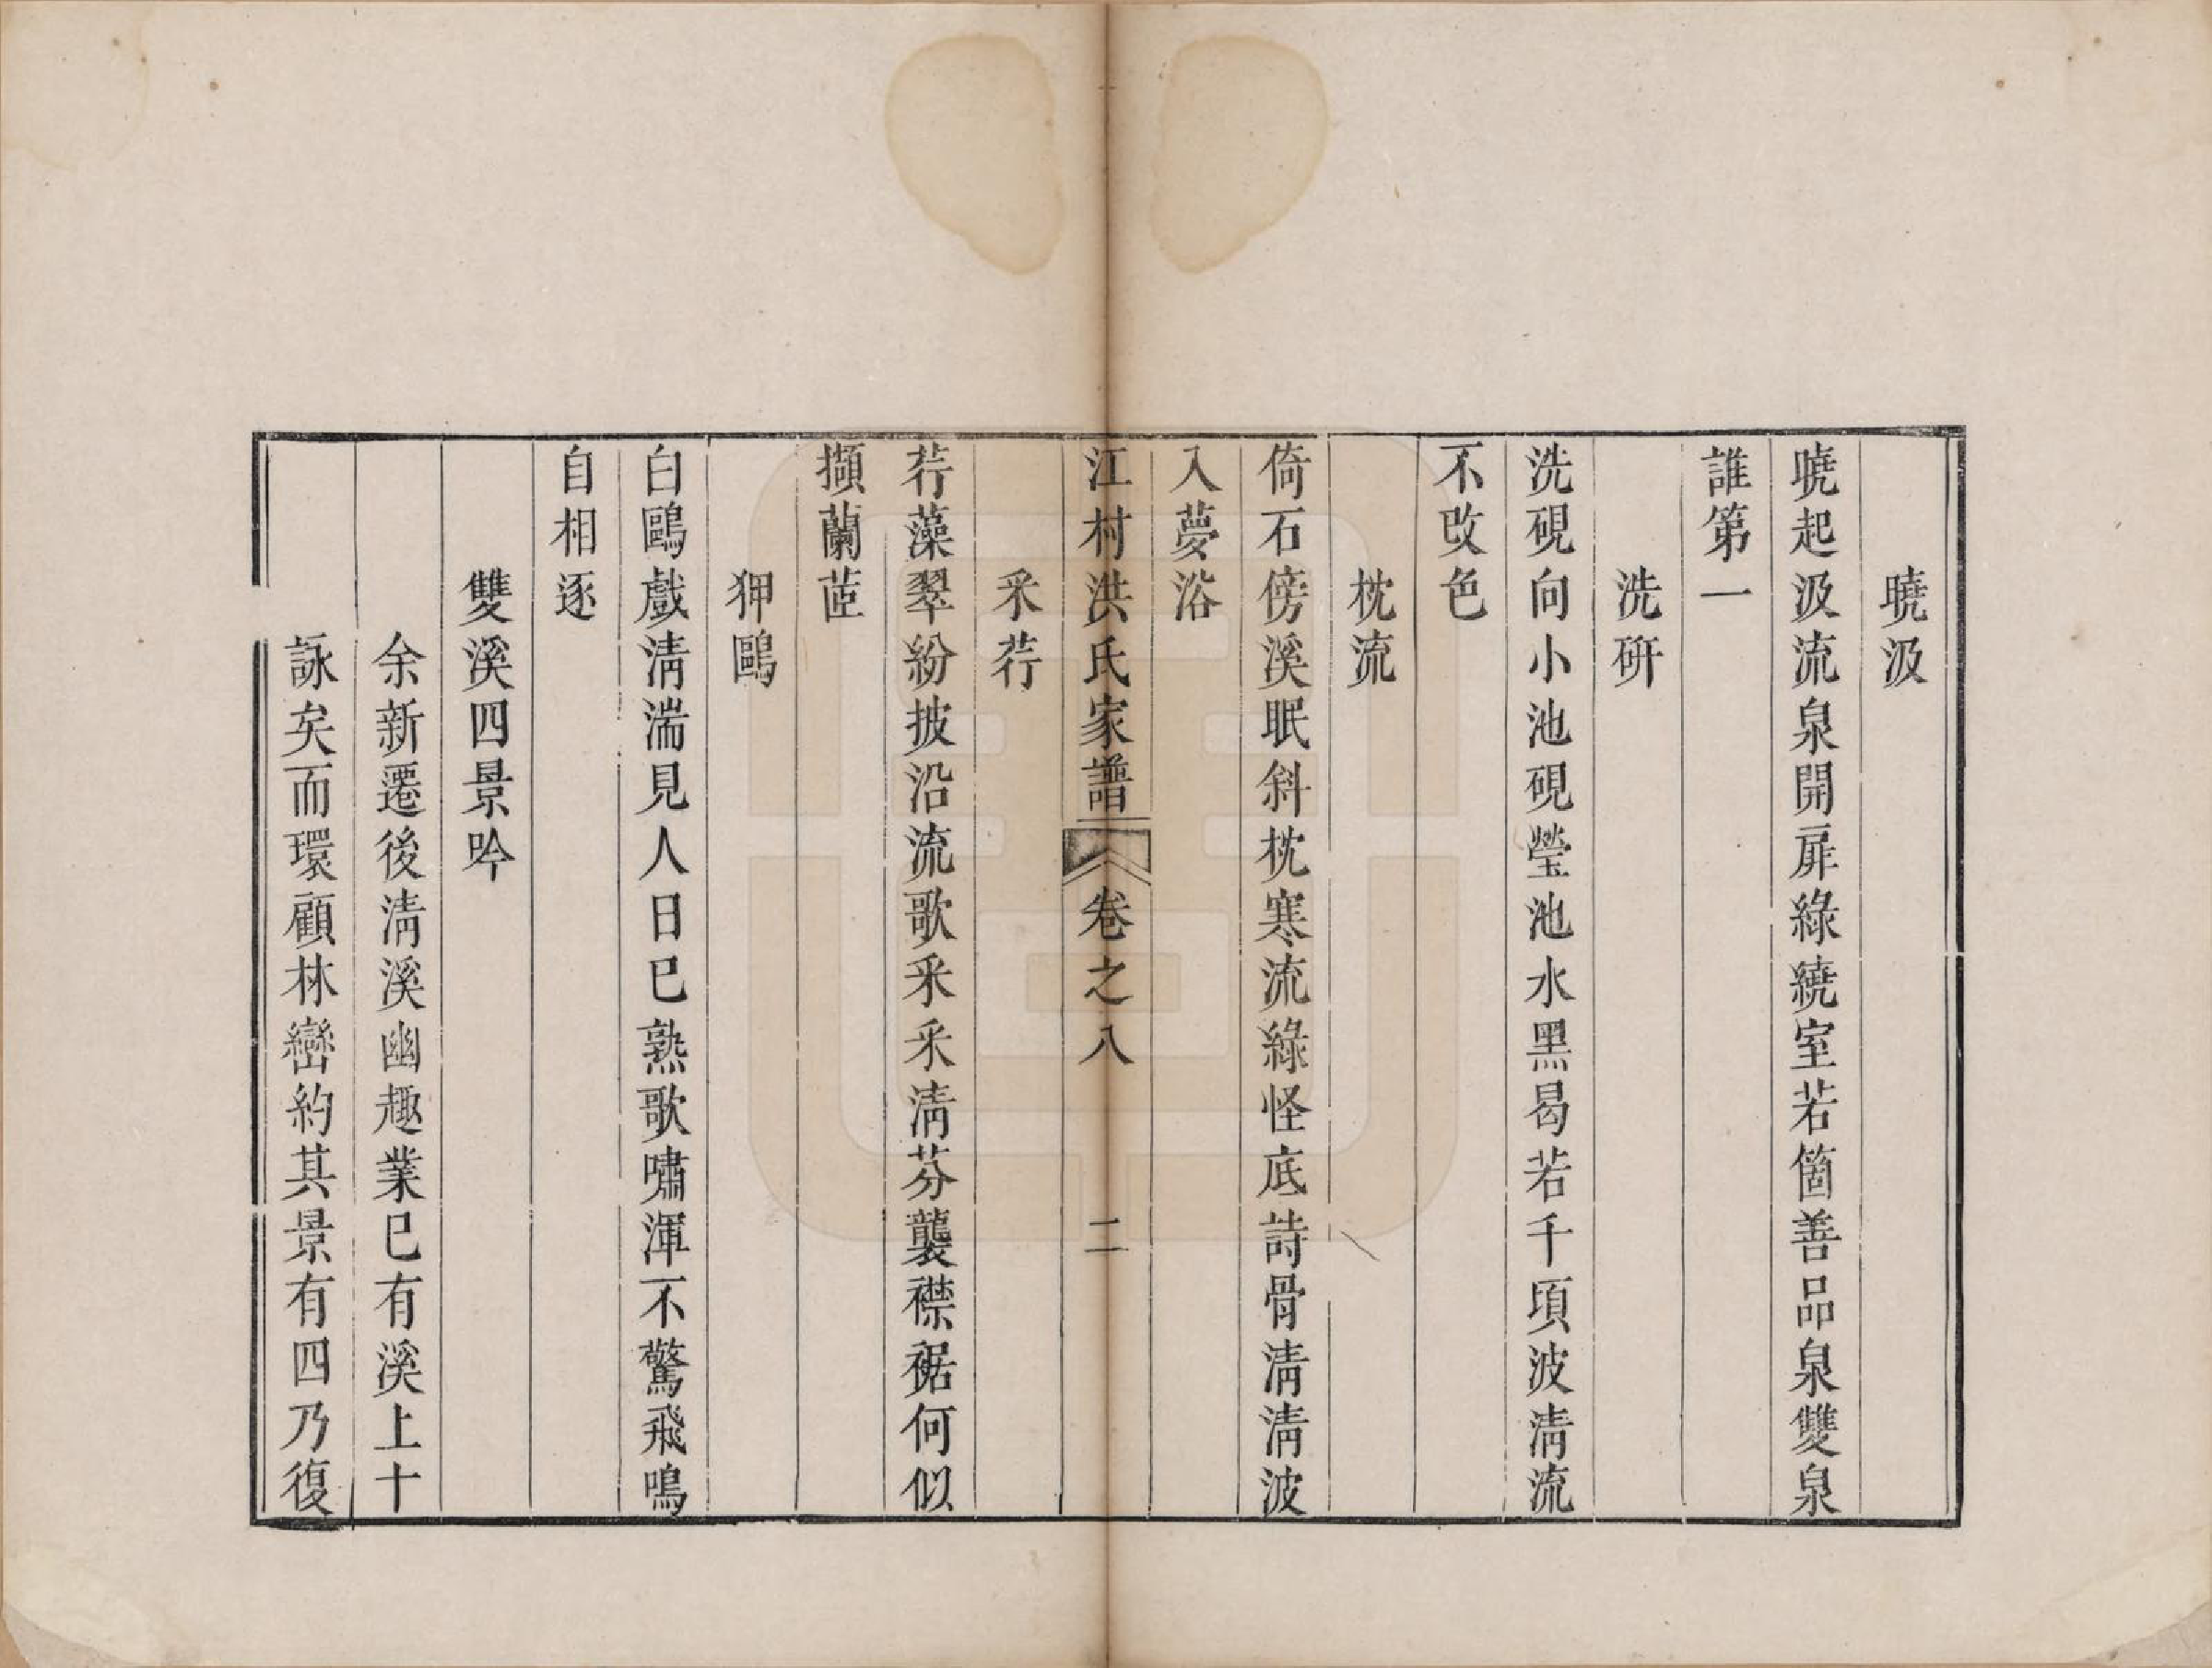 曉汲
曉起汲流泉開扉綠繞室若箇善品泉雙泉
誰第一
洗硏
洗硯向小池硯瑩池水黑曷若千頃波淸流
不改色
枕流
倚石傍溪眠斜枕寒流綠怪底詩骨淸淸波
入夢浴
江村洪氏家譜 卷之八 二
采荇
荇藻翠紛披沿流歌采采淸芬襲襟裾何似
擷蘭茝
狎鷗
白鷗戲淸湍見人日巳熟歌嘯渾不驚飛鳴
自相逐
雙溪四景吟
余新遷後淸溪幽趣業巳有溪上十
詠矣而環顧林巒約其景有四乃復